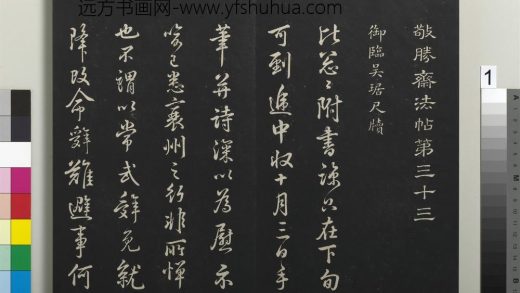 远方书画网-www.yfshuhua.com
敬勝齋法帖第三十三
御臨吳琚尺牘
比忩忩附書諒只在下旬
可到遞中收十月三日手
筆并詩深以為慰示
喻已悉襄州之行非所憚
也不謂以常式辭免就
降改命辭難避事何
1